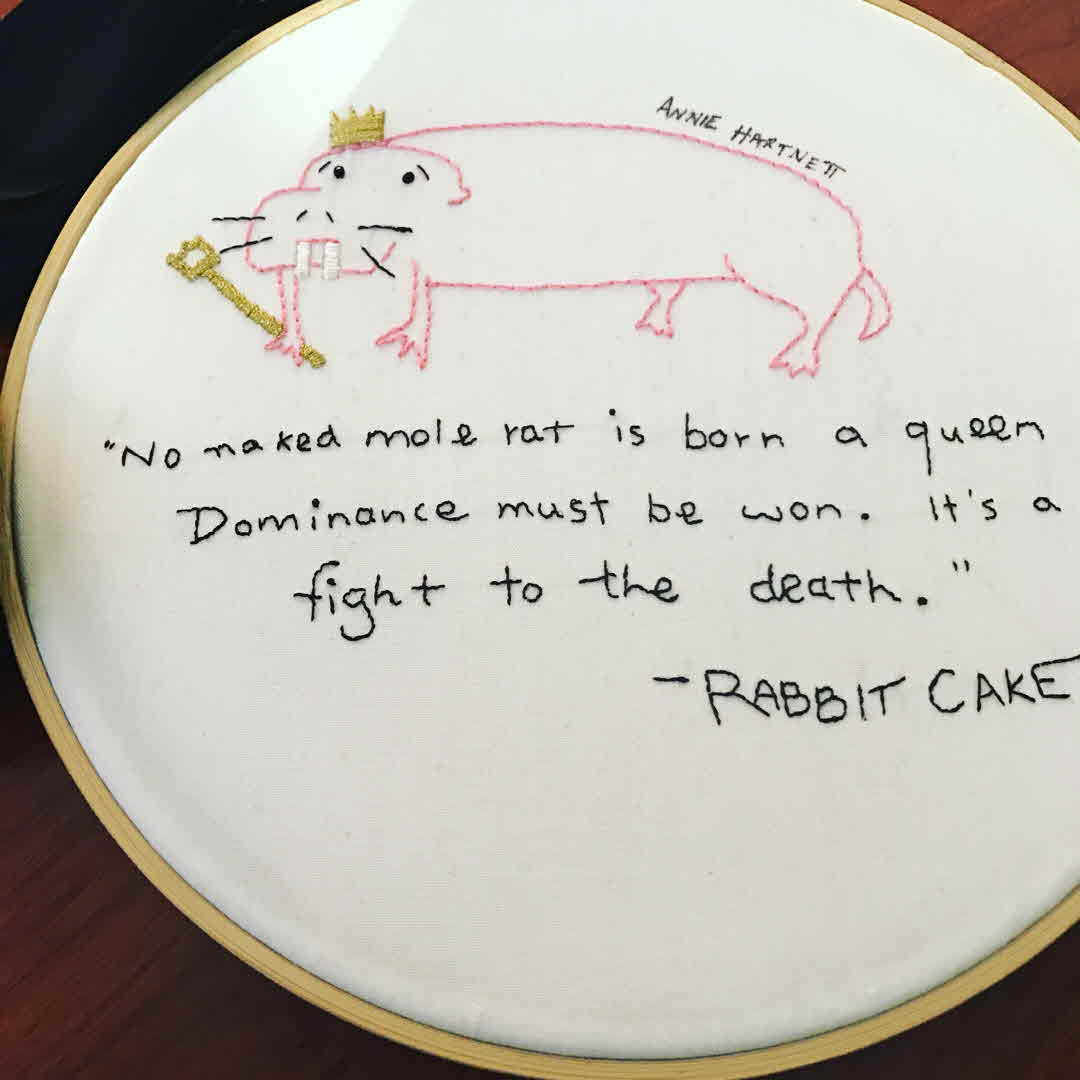 ANNIE HARTNETT
"No naked mole rat is born a queen
Dominance must be won. It's a
fight to the death."
- RABBIT CAKE